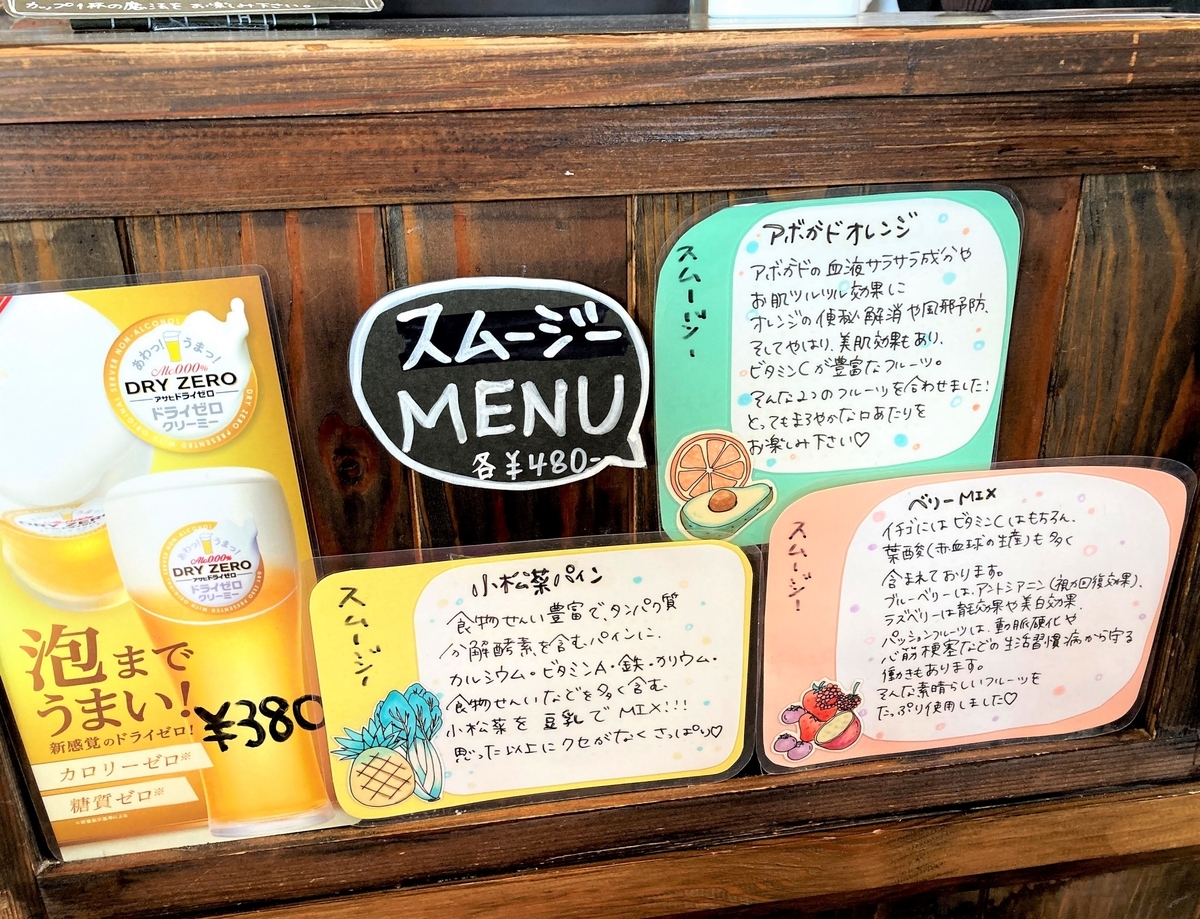 カップ1杯の魔法をお楽しみ下さい。
スムージー
MENU
各¥480-
スムージー
アボガドオレンジ
アボガドの血液サラサラ成分や
お肌ツルツル効果に
オレンジの便秘解消や風邪予防、
そしてやはり、美肌効果もあり、
ビタミンCが豊富なフルーツ。
そんな2つのフルーツを合わせました!
とってもまろやかな口あたりを
お楽しみ下さい♡
スムージー
小松菜パイン
食物せんい豊富で、タンパク質
分解酵素を含むパインに、
カルシウム・ビタミンA・鉄・カリウム・
食物せんいなどを多く含む、
小松菜を豆乳でMIX!!!
思った以上にクセがなくさっぱり♡
スムージー
ベリーMIX
イチゴにはビタミンCはもちろん、
葉酸(赤血球の生産)も多く
含まれております。
ブルーベリーは、アントシアニン(視力回復効果)、
ラズベリーは育毛効果や美白効果、
パッションフルーツは、動脈硬化や
心筋梗塞などの生活習慣病から守る
働きもあります。
そんな素晴らしいフルーツを
たっぷり使用しました♡
あわっ!うまっ!
Alc.0.00%
DRY ZERO
アサヒドライゼロ
ドライゼロ
クリーミー
DRY ZERO
あわっ!うまっ!
Alc.0.00%
DRY ZERO
アサヒドライゼロ
ドライゼロ
クリーミー
泡まで
うまい!
¥380
新感覚のドライゼロ!
カロリーゼロ※
糖質ゼロ※